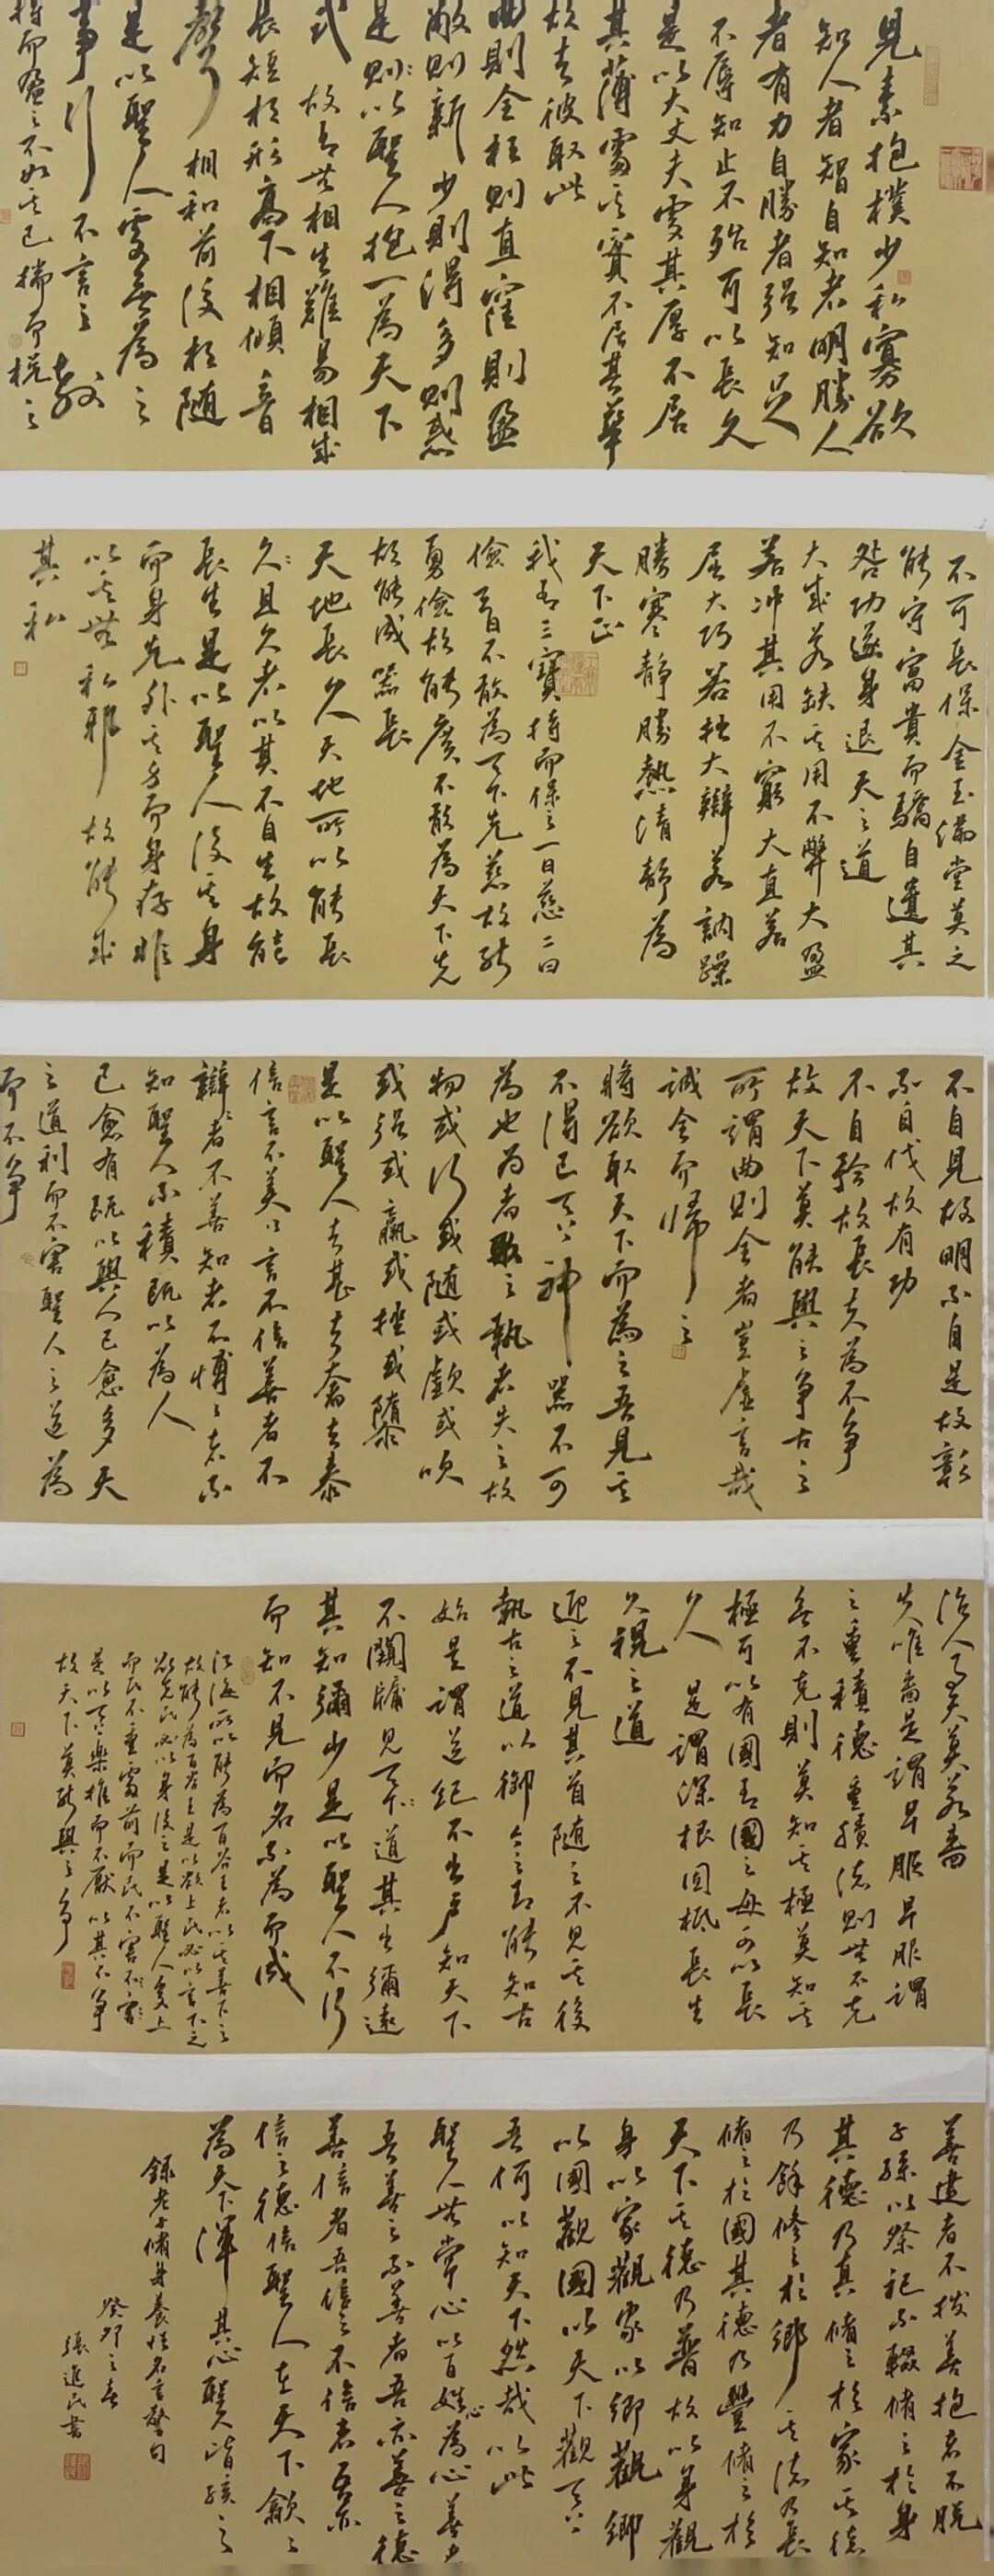 見素抱樸少私寡欲
知人者智自知者明勝人
者有力自勝者强知足
不辱知止不殆可以長久
是以大丈夫處其厚不居
其薄處其實不居其華
故去彼取此
曲則全枉則直窪則盈
敝則新少則得多則惑
是則以聖人抱一為天下
式 故有無相生難易相成
長短相形高下相傾音
聲相和前後相隨
是以聖人處無為之
事行不言之教
持而盈之不如其已揣而梲之
不可長保金玉滿堂莫之
能守富貴而驕自遺其
咎功遂身退天之道
大成若缺其用不弊大盈
若冲其用不窮大直若
屈大巧若拙大辯若訥躁
勝寒靜勝熱清靜為
天下正
我有三寶持而保之一曰慈二曰
儉三曰不敢為天下先慈故能
勇儉故能廣不敢為天下先
故能成器長
天地長久天地所以能長
久且久者以其不自生故能
長生是以聖人後其身
而身先外其身而身存非
以其無私邪故能成
其私
不自見故明不自是故彰
不自伐故有功
不自矜故長夫為不爭
故天下莫能與之爭古之
所謂曲則全者豈虛言哉
誠全而歸之
將欲取天下而為之吾見其
不得已天下神器不可
為也為者敗之執者失之故
物或行或隨或歔或吹
或强或羸或挫或隳
是以聖人去甚去奢去泰
信言不美美言不信善者不
辯辯者不善知者不博博者不
知聖人不積既以為人
己愈有既以與人己愈多天
之道利而不害聖人之道為
而不爭
治人事天莫若嗇
夫唯嗇是謂早服早服謂
之重積德重積德則無不克
無不克則莫知其極莫知其
極可以有國有國之母可以長
久 是謂深根固柢長生
久視之道
迎之不見其首隨之不見其後
執古之道以御今之有能知古
始是謂道紀不出户知天下
不闚牖見天下道其出彌遠
其知彌少是以聖人不行
而知不見而名不為而成
江海所以能為百谷王者以其善下之
故能為百谷王是以欲上民必以言下之
欲先民必以身後之是以聖人處上
而民不重處前而民不害
是以天下樂推而不厭以其不爭
故天下莫能與之爭
善建者不拔善抱者不脱
子孫以祭祀不輟脩之於身
其德乃真脩之於家其德
乃餘修之於鄉其德乃長
脩之於國其德乃豐脩之於
天下其德乃普故以身觀
身以家觀家以鄉觀鄉
以國觀國以天下觀天下
吾何以知天下然哉以此
聖人無常心以百姓心為心善者
吾善之不善者吾亦善之德
善信者吾信之不信者吾亦
信之德信聖人在天下歙歙
為天下渾其心聖人皆孩之
録老子脩身養性名言警句
癸卯之春
張進民書